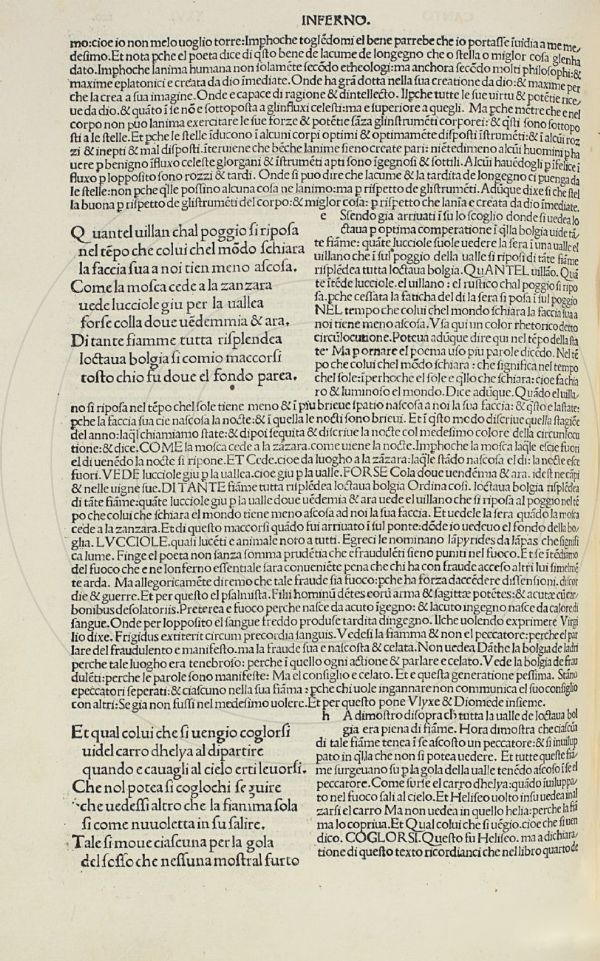 INFERNO.
mo:cioe io non melo uoglio torre:Imphoche toglẽdomi el bene parrebe che io portasse ĩuidia a me me/
desimo.Et nota pche el poeta dice di q̃sto bene de lacume de longegno che o stella o miglor cosa glenha
dato.Imphoche lanima humana non solamẽte secõdo etheologi:ma anchora secõdo molti philosophi:&
maxime eplatonici e creata da dio ĩmediate.Onde ha grã dotta nella sua creatione da dio:& maxime per
che la crea a sua imagine.Onde e capace di ragione & dintellecto.Ilpche tutte le sue uirtu & potẽtie rice/
ue da dio.& quãto ĩ se nõ e sottoposta a glinfluxi celesti:ma e superiore a quegli. Ma pche mẽtre che e nel
corpo non puo lanima exercitare le sue forze & potẽtie sãza glinstrumẽti corporei: & q̃sti sono sottopo
sti a le stelle.Et pche le stelle ĩducono ĩ alcuni corpi optimi & optimamẽte disposti ĩstrumẽti:& ĩ alcũi roz
zi & inepti & mal disposti.ĩteruiene che bẽche lanime sieno create pari: niẽtedimeno alcũi huomini pha
uere p benigno ĩfluxo celeste glorgani & ĩstrumẽti apti sono ĩgegnosi & sottili. Alcũi hauẽdogli p ĩfelice ĩ
fluxo p lopposito sono rozzi & tardi. Onde si puo dire che lacume & la tardita de longegno ci puenga da
le stelle:non pche q̃lle possino alcuna cosa ne lanimo:ma p rispetto de glistrumẽti.Adũque dixe si che stel
la buona p rispetto de glistrumẽti del corpo:& miglor cosa: p rispetto che lania e creata da dio ĩmediate.
Quantel uillan chal poggio si riposa
nel tẽpo che colui chel mõdo schiara
la faccia sua a noi tien meno ascosa.
Come la mosca cede a la zanzara
uede lucciole giu per la uallea
forse colla doue uẽdemmia & ara.
Di tante fiamme tutta risplendea
loctaua bolgia si comio maccorsi
tosto chio fu doue el fondo parea.
e Ssendo gia arriuati ĩ su lo scoglio donde si uedea lo
ctaua p optima comperatione ĩ q̃lla bolgia uide tã/
te fiãme: quãte lucciole suole uedere la sera ĩ una ualle el
uillano che ĩ sul poggio della ualle si riposi di tãte fiãme
risplẽdea tutta loctaua bolgia.QuANTEL uillão. Quã
te ĩtẽde lucciole.el uillano: el rustico chal poggio si ripo
sa.pche cessata la faticha del di la sera si posa ĩ sul poggio
NEL tempo che colui chel mondo schiara la faccia sua a
noi tiene meno ascosa.Vsa qui un color rhetorico detto
circũlocutione.Poteua adũque dire qui nel tẽpo della sta
te. Ma p ornare el poema uso piu parole dicẽdo. Nel tẽ
po che colui chel mõdo schiara : che significa nel tempo
chel sole:ĩperhoche el sole e q̃llo che schiara:cioe fa chia
ro & luminoso el mondo. Dice adũque.Quãdo el uilla/
no si riposa nel tẽpo chel sole tiene meno & ĩ piu brieue spatio nascosa a noi la sua faccia: & q̃sto e la state:
pche la faccia sua cie nascosa la nocte:& ĩ quella le nocti sono brieui. Et ĩ q̃sto modo discriue quella stagiõe
del anno:laq̃l chiamiamo state:& dipoi seguita & discriue la nocte col medesimo colore della circunlocu
tione:& dice.COME la mosca cede a la zãzara.come uiene la nocte.Imphoche la mosca laq̃le escie fuori
el di uenẽdo la nocte si ripone.ET Cede.cioe da luogho a la zãzara:laq̃le stãdo nascosa el di:la nocte esce
fuori.VEDE lucciole giu p la uallea.cioe giu p la ualle.FORSE Cola doue uendẽmia & ara. idest ne cãpi
& nelle uigne sue.DI TANTE fiãme tutta risplẽdea loctaua bolgia Ordina cosi. loctaua bolgia risplẽdea
di tãte fiãme:quãte lucciole giu p la ualle doue uẽdemia & ara uede el uillano che si riposa al poggio nel tẽ
po che colui che schiara el mondo tiene meno ascosa ad noi la sua faccia. Et uedele la sera quãdo la mosca
cede a la zanzara.Et di questo maccorsi quãdo fui arriuato ĩ sul ponte:dõde io uedeuo el fondo della bo/
glia. LVCCIOLE.quali lucẽti e animale noto a tutti. Egreci le nominano lãpyrides da lãpas che signifi
ca lume. Finge el poeta non sanza somma prudẽtia che efraudulẽti sieno puniti nel fuoco. Et se ĩtẽdiamo
del fuoco che e ne lonferno essentiale sara conueniẽte pena che chi ha con fraude acceso altri lui similmẽ
te arda. Ma allegoricamẽte diremo che tale fraude sia fuoco:pche ha forza daccẽdere dissensioni. discor
die & guerre.Et per questo el psalmista.Filii hominũ dẽtes eorũ arma & sagittae potẽtes:& acutae cũ car/
bonibus desolatoriis.Preterea e fuoco perche nasce da acuto ĩgegno: & lacuto ingegno nasce da calore di
sangue.Onde per lopposito el sangue freddo produse tardita dingegno. Ilche uolendo exprimere Virgi
lio dixe. Frigidus extiterit circum precordia sanguis. Vedesi la fiamma & non el peccatore:perche el par
lare del fraudulento e manifesto.ma la fraude sua e nascosta & celata. Non uedea Dãthe la bolgia de ladri
perche tale luogho era tenebroso: perche ĩ quello ogni actione & parlare e celato. Vede la bolgia de frau
dulẽti:perche le parole sono manifeste: Ma el consiglio e celato. Et e questa generatione pessima. Stãno
epeccatori seperati:& ciascuno nella sua fiãma :pche chi uole ingannare non communica el suo consiglio
con altri:Se gia non fussi nel medesimo uolere.Et per questo pone Vlyxe & Diomede insieme.
Et qual colui che si uengio coglorsi
uidel carro dhelya al dipartire
quando e cauagli al cielo erti leuorsi.
Che nol potea si coglochi seguire
che uedessi altro che la fiamma sola
si come nuuoletta in su salire.
Tale si moue ciascuna per la gola
del fosso che nessuna mostral furto
h A dimostro disopra ch tutta la ualle de loctaua bol
gia era piena di fiãme. Hora dimostra che ciascũa
di tale fiãme tenea ĩ se ascosto un peccatore:& si inuilup
pato in q̃lla che non si potea uedere. Et tutte queste fiã/
me surgeuano su p la gola della ualle tenẽdo ascoso ĩ se el
peccatore.Come surse el carro dhelya:quãdo ĩuiluppa/
to nel fuoco sali al cielo.Et Heliseo uolto insu uedea inal
zarsi el carro Ma non uedea in quello helia:perche la fiã
ma lo copriua.Et Qual colui che si uẽgio.cioe che si uen
dico. COGLORSI.Questo fu Heliseo. ma a dichiara/
tione di questo texto ricordianci che nel libro quarto de